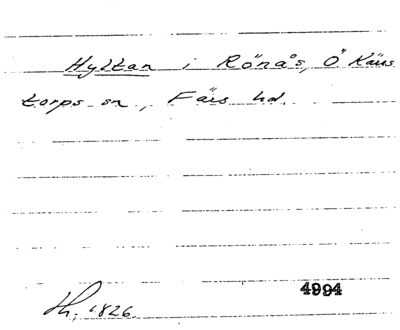 Hyltan i Rönås, Ö Kärs
torps sn, Färs hd.
4994
Hh, 1826.